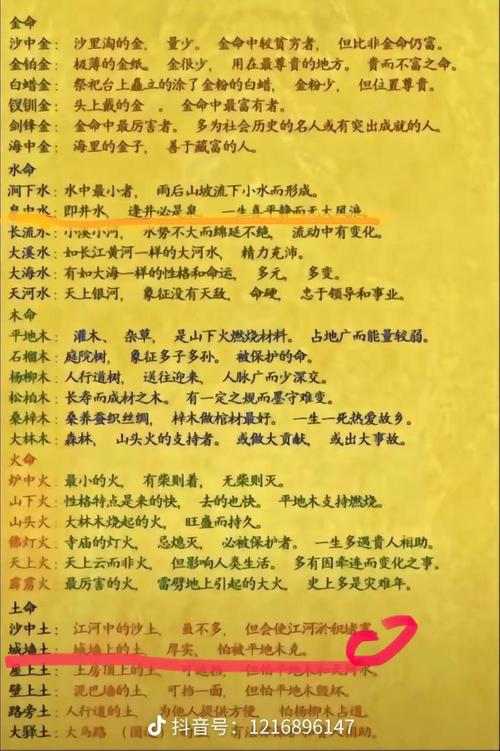 金命
沙中金：沙里淘的金，量少。金命中较贫穷者，但比非金命仍富。
金铂金：极薄的金纸。金很少，用在最尊貴的地方。貴而不富之命。
白蜡金：祭祀台上矗立的涂了金粉的白蜡，金粉少，但位置尊貴。
钗钏金：头上戴的金。金命中最富有者。
剑锋金：金命中最厉害者。多为社会历史的名人或有突出成就的人。
海中金：海里的金子，善于藏富的人。
水命
涧下水：水中最小者，雨后山坡流下小水而形成。
泉中水：即井水，逢井必是泉，一生真平静而无大风浪
长流水：小溪小河，水势不大而绵延不绝，流动中有变化。
大溪水：如长江黄河一样的大河水，精力充沛。
大海水：有如大海一样的性格和命运，多元，多变。
天河水：天上银河，象征没有天敌，命硬，忠于领导和事业。
木命
平地木：灌木、杂草，是山下火燃烧材料。占地广而能量较弱。
石榴木：庭院树，象征多子多孙。被保护的命。
杨柳木：人行道树，送往迎来，人脉广而少深交。
松柏木：长寿而成材之木。有一定之规而墨守难变。
桑梓木：桑养蚕织丝绸，梓木做棺材最好。一生一死热爱故乡。
大林木：森林，山头火的支持者。或做大贡献，或出大事故。
火命
炉中火：最小的火，有柴则着，无柴则灭。
山下火：性格特点是来的快，去的也快。平地木支持燃烧。
山头火：大林木烧起的火，旺盛而持久。
佛灯火：寺庙的灯火，忌熄灭，必被保护者。一生多遇貴人相助。
天上火：天上云而非火，但影响人类生活。多有因牵连而变化之事。
霹雳火：最厉害的火，雷劈地上引起的大火，史上多是灾难年。
土命
沙中土：江河中的沙土，虽不多，但会使江河淤积堵塞
城墙土：城墙上的土，厚实，怕被平地木克。
屋上土：土房顶上的土，可遮挡，但怕平地木和天河水
壁上土：泥巴墙的土，可挡一面，但怕平地木毁坏。
路旁土：人行道的土，为他人提供方便，怕杨柳木占道。
大驿土：大马路
抖音号：1216896147